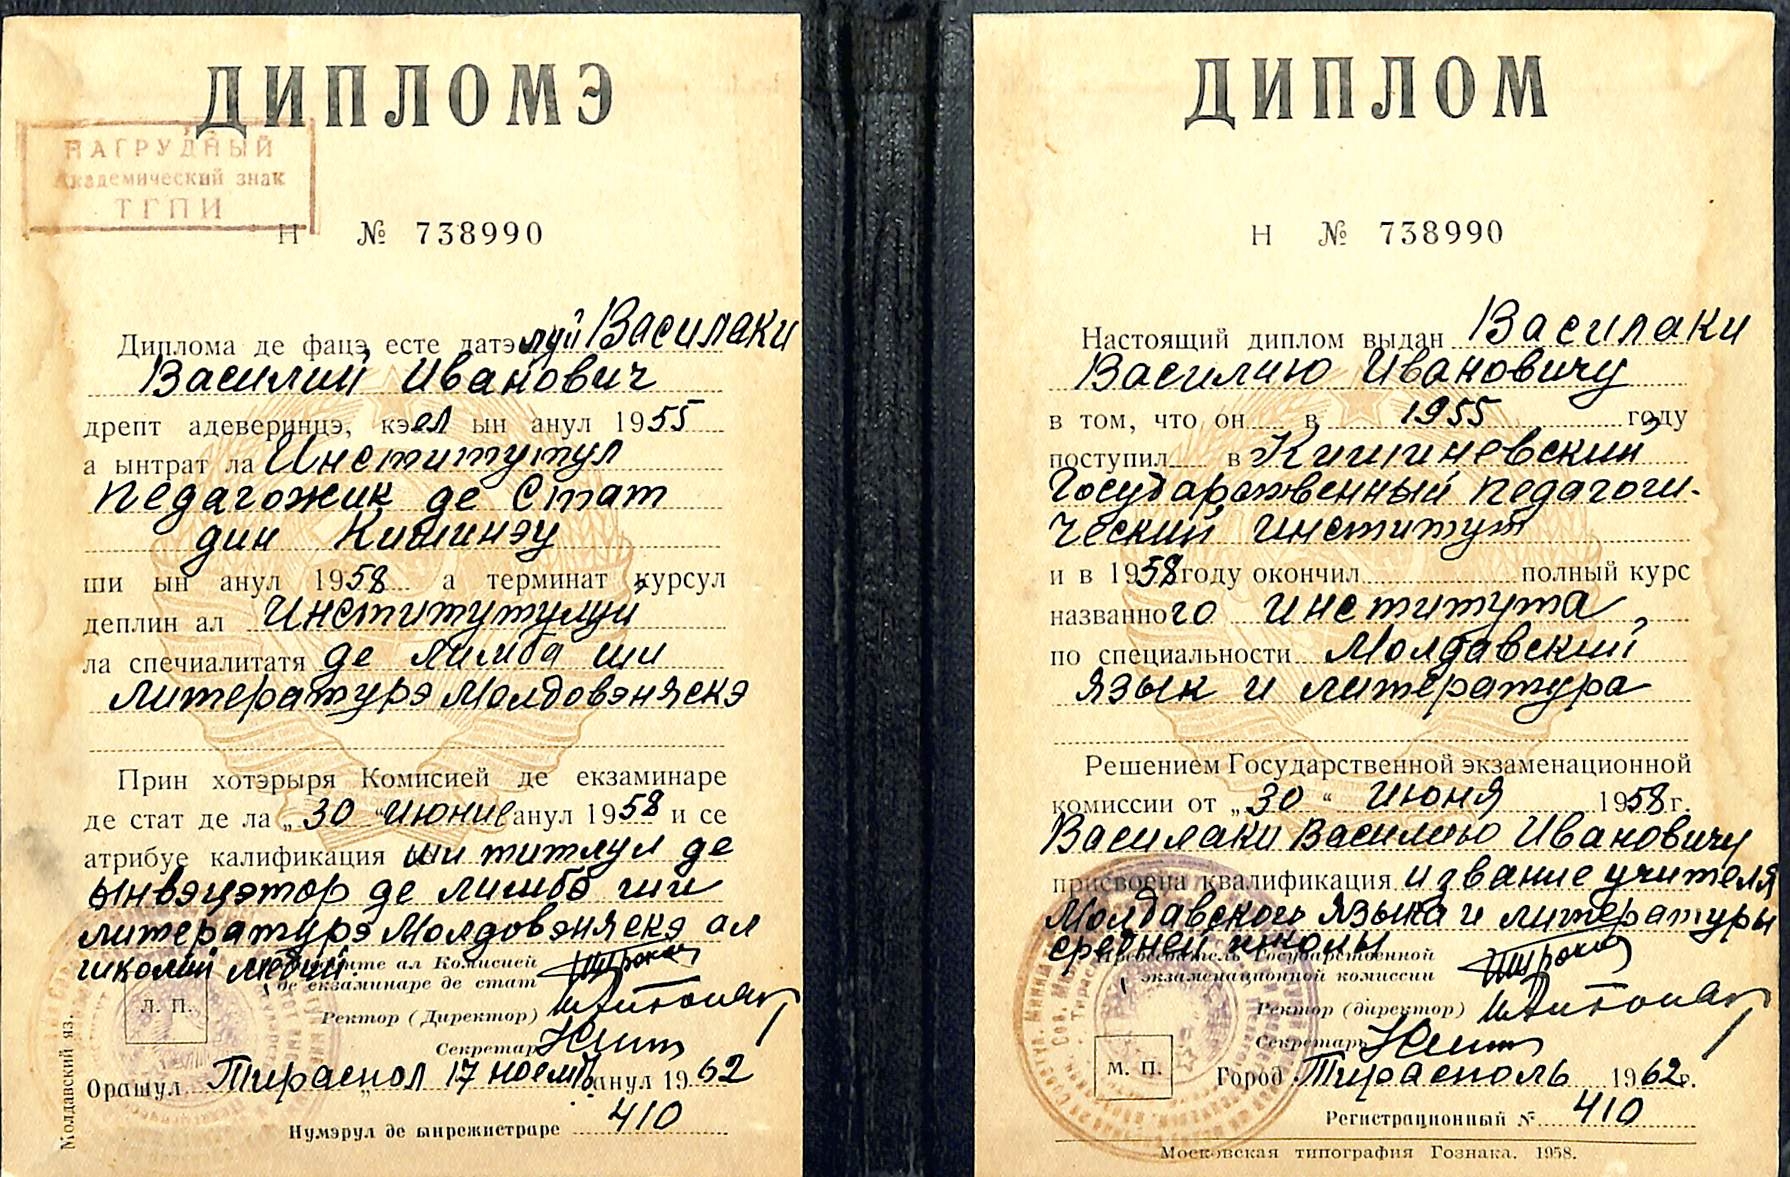 ДИПЛОМЭ
НАГРУДНЫЙ
Академический знак
ТГПИ
Н № 738990
Диплома де фацэ есте датэ луй Василаки
Василий Иванович
дрепт адеверинцэ, кэ ел ын анул 1955
а ынтрат ла Институтул
Педагожик де Стат
дин Кишинэу
ши ын анул 1958 а терминат курсул
деплин ал Институтулуй
ла спечиалитатя де лимба ши
литературэ Молдовэняскэ
Прин хотэрыря Комисией де екзаминаре
де стат де ла „30" Июние анул 1958 и се
атрибуе калификация ши титлул де
ынвэцэтор де лимбэ ши
литературэ Молдовэняскэ ал
школий медий
ал Комисией
де екзаминаре де стат
Л. П.
Ректор (Директор)
Секретар
Орашул Тираспол 17 ноемб анул 1962
Нумэрул де ынрежистраре 410
Молдавский яз.
ДИПЛОМ
Н № 738990
Настоящий диплом выдан Василаки
Василию Ивановичу
в том, что он в 1955 году
поступил в Кишиневский
Государственный педагоги-
ческий институт
и в 1958 году окончил полный курс
названного института
по специальности Молдавский
язык и литература
Решением Государственной экзаменационной
комиссии от „30" Июня 1958 г.
Василаки Василию Ивановичу
присвоена квалификация и звание учителя
Молдавского языка и литературы
средней школы
Председатель Государственной
экзаменационной комиссии
Ректор (директор)
Секретарь
М. П.
Город Тирасполь 1962 г.
Регистрационный № 410
Московская типография Гознака. 1958.